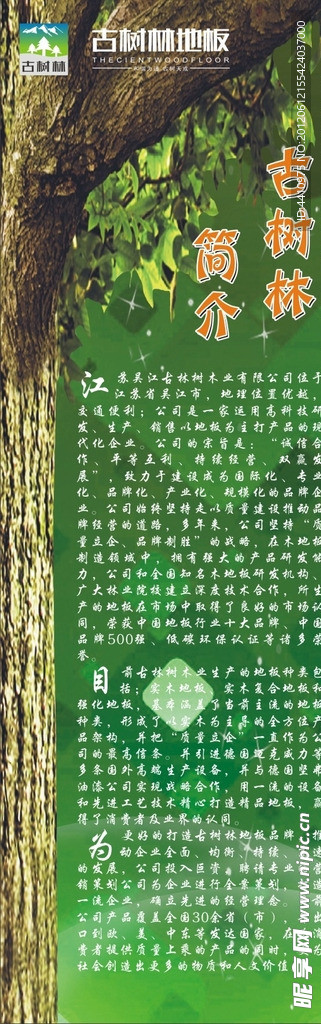 古树林
古树林地板
THECIENTWOODFLOOR
古树林
简介
江苏吴江古林树木业有限公司位于
江苏省吴江市，地理位置优越，
交通便利；公司是一家运用高科技研
发、生产、销售以地板为主打产品的现
代化企业。公司的宗旨是：“诚信合
作、平等互利、持续经营、双赢发
展”，致力于建设成为国际化、专业
化、品牌化、产业化、规模化的品牌企
业。公司始终坚持走以质量建设推动品
牌经营的道路，多年来，公司坚持“质
量立企、品牌制胜”的战略，在木地板
制造领域中，拥有强大的产品研发能
力，公司和全国知名木地板研发机构、
广大林业院校建立深度技术合作，所生
产的地板在市场中取得了良好的市场认
同，荣获中国地板行业十大品牌、中国
品牌500强、低碳环保认证等诸多荣
誉。
目前古林树木业生产的地板种类包
括：实木地板、实木复合地板和
强化地板，基本涵盖了当前主流的地板
种类，形成了以实木为主导的全方位产
品架构，并把“质量立企”一直作为公
司的最高信条。并引进德国理克威力等
多条国外高端生产设备，并与德国坚弗
油漆公司实现战略合作，并用一流的设备
和先进工艺技术精心打造精品地板，赢
得了消费者及业界的认同。
为更好的打造古树林地板品牌，推
动企业全面、均衡、持续、运营
的发展，公司投入巨资，聘请专业营
销策划公司为企业进行全案策划，
一流企业，确立先进的经营理念。
公司产品覆盖全国30余省（市），出
口到欧、美、中东等发达国家，在为消
费者提供质量上乘的产品的同时，为
社会创造出更多的物质和人文价值
昵享网 www.nipic.cn
NO:20120612155424037000